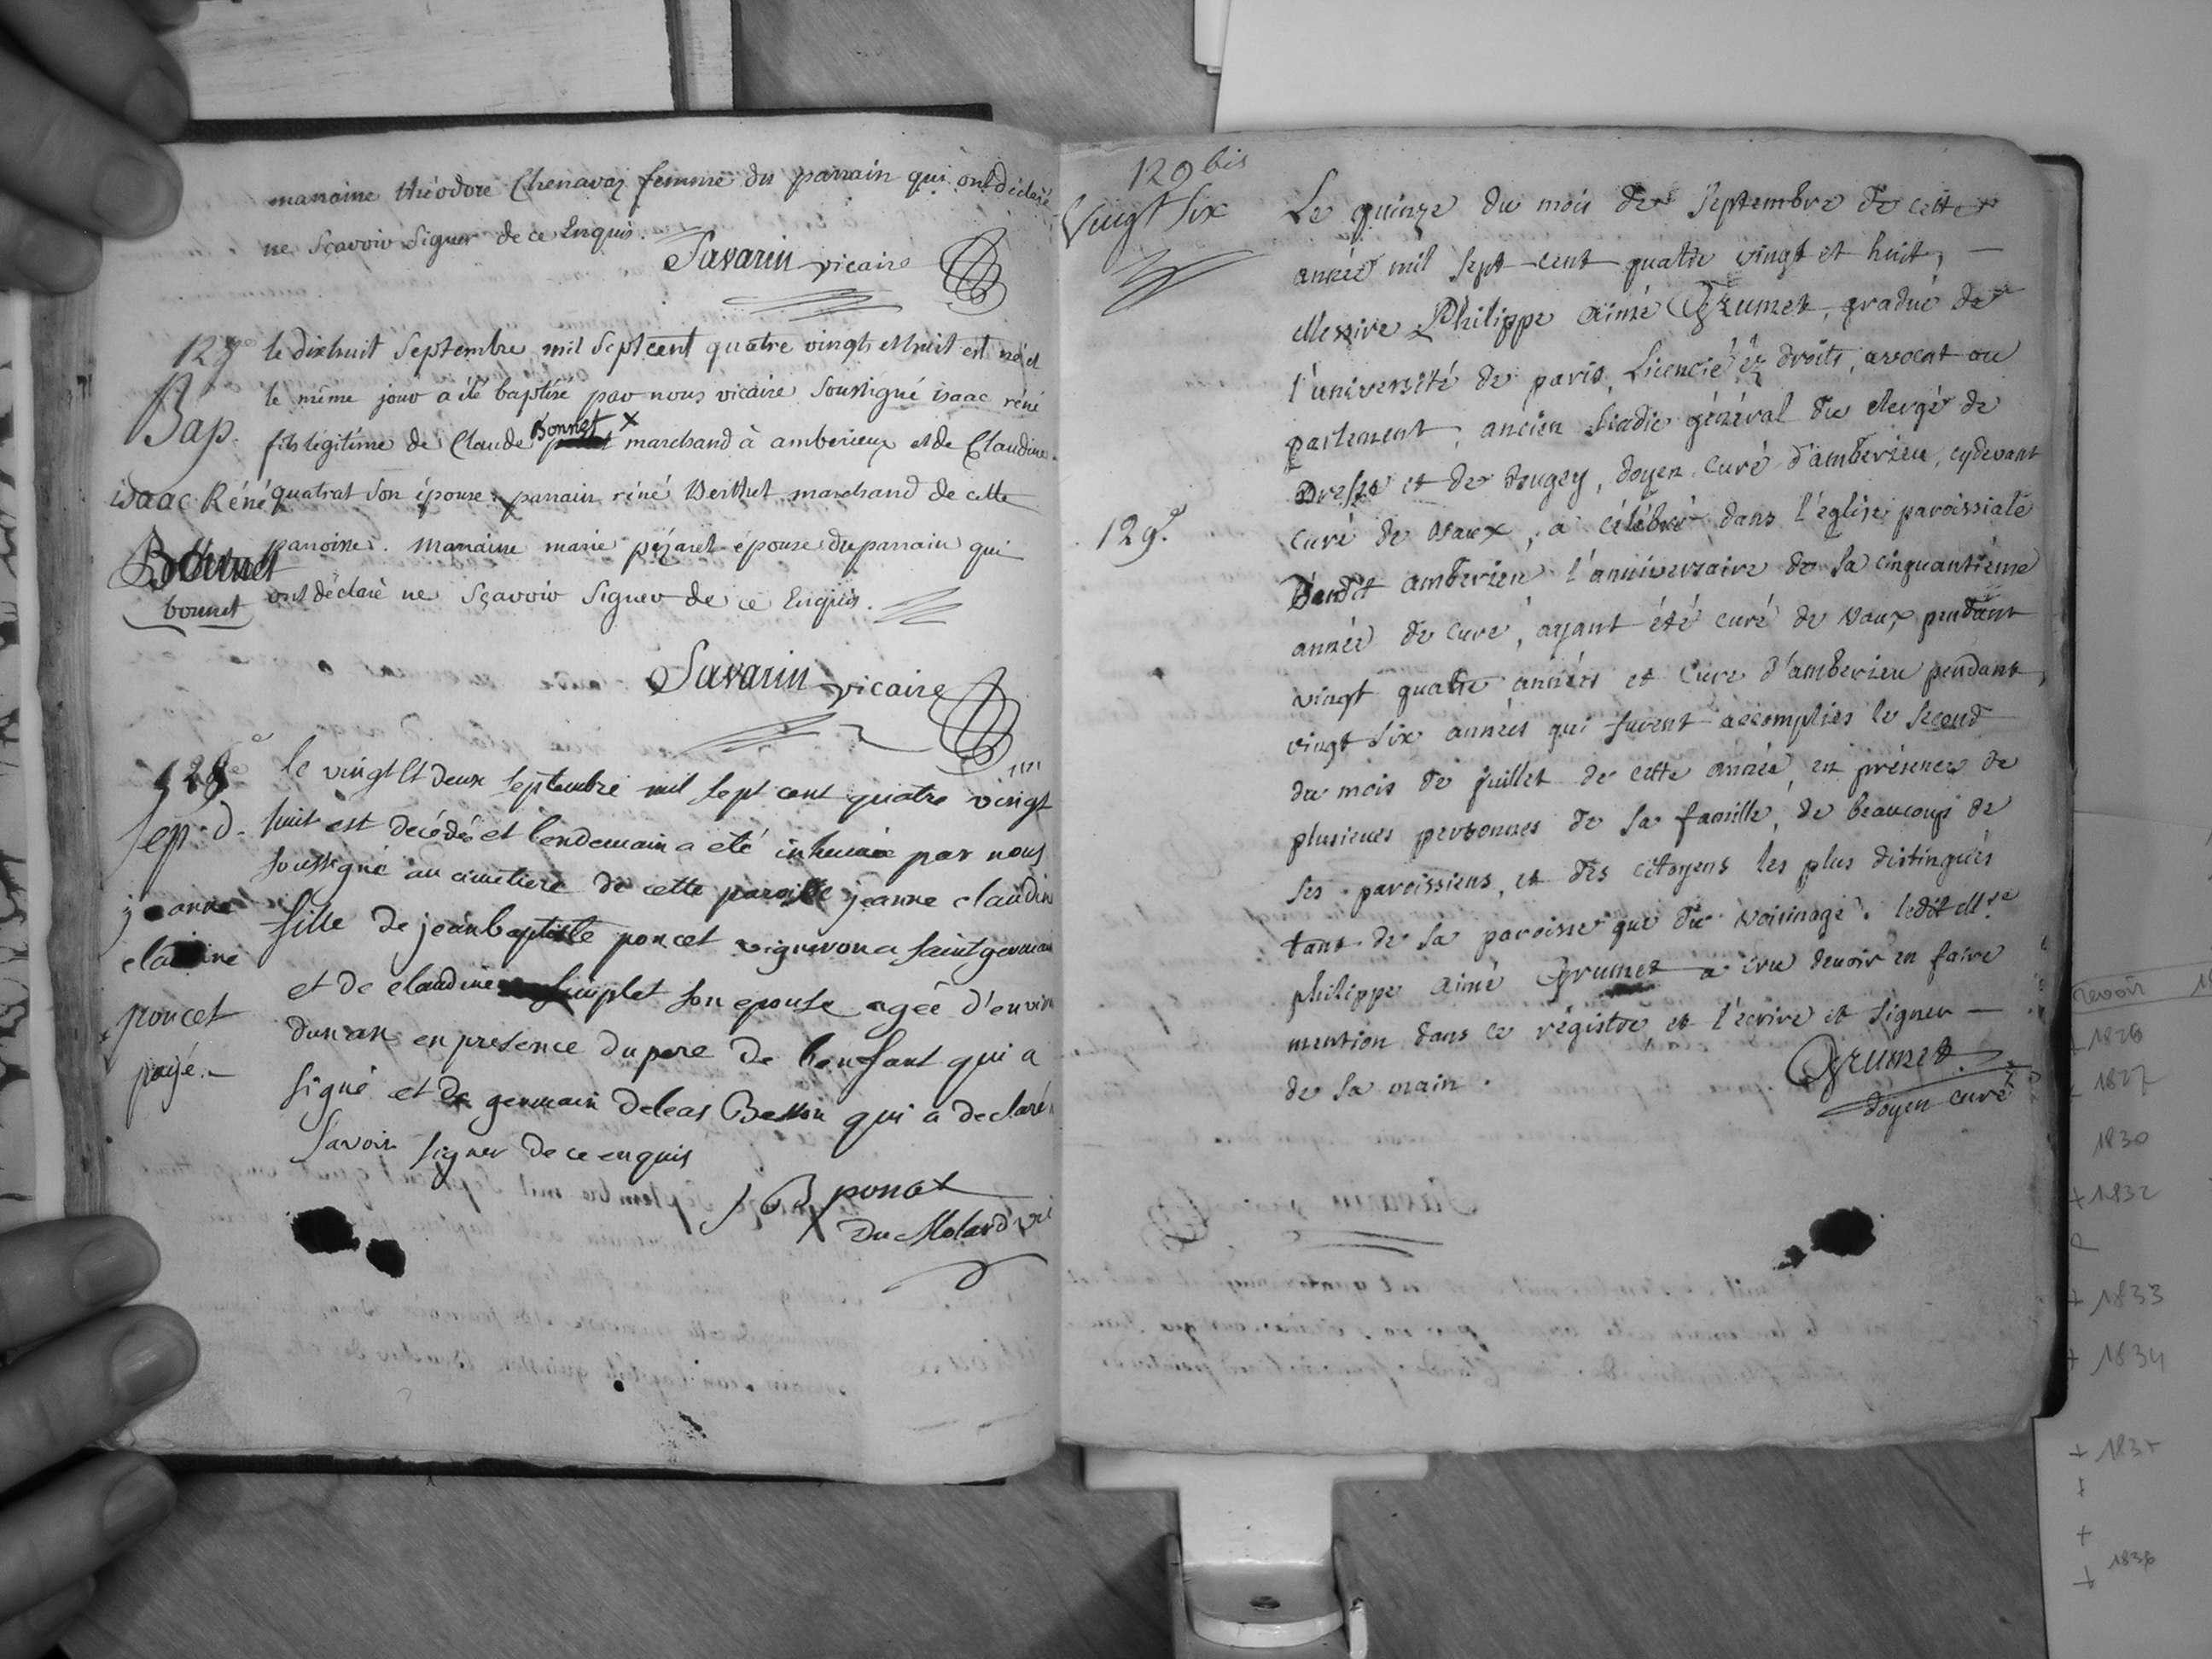 marraine théodore Chenavaz femme du parrain qui ont déclaré
ne sçavoir signer de ce Enquis.
Savarin vicaire
127e le dixhuit Septembre mil Septcent quatre vingts et huit est né et
Bap. le même jour a été baptisé par nous vicaire Soussigné isaac réné
fils legitime de Claude Bonnet x marchand à amberieux et de Claudine
isaac Réné quatrat son épouse. parrain réné Berthet marchand de cette
parroisse. Marraine marie pézaret épouse du parrain qui
bonnet ont déclaré ne Sçavoir Signer de ce Enquis.
Savarin vicaire
128e le vingt et deux septembre mil sept cent quatre vingt
Sep. d. huit est decédée et lendemain a eté inhumée par nous
soussigné au cimetiere de cette paroisse jeanne claudin
jeanne fille de jean baptiste poncet vigneron a saint germain
claudine et de claudine simplet son epouse agée d'environ
poncet dun an en presence du pere de l'enfant qui a
payé.- signé et de germain deleas Besson qui a declaré n
savoir signer de ce enquis
J B ponset
Du Molard vic
129 bis
Vingt Six
Le quinze du mois de Septembre de cette
année mil sept cent quatre vingt et huit, —
Messire Philippe aimé Grumet, gradué de
l'université de paris, Licencié éz droits, avocat au
parlement, ancien Sindic général du clergé de
Bresse et de Bugey, doyen curé d'amberieu, cydevant
129e. curé de Vaux, a célébré dans l'église paroissiale
dudit amberieu l'anniversaire de sa cinquantième
année de curé, ayant été curé de Vaux pendant
vingt quatre années et curé d'amberieu pendant
vingt six années qui furent accomplies le second
du mois de juillet de cette année, en présence de
plusieurs personnes de sa famille, de beaucoup de
ses paroissiens, et des citoyens les plus distingués
tant de sa paroisse que du voisinage. ledit Mre
philippe aimé Grumet a cru devoir en faire
mention dans ce régistre, et l'écrire et signer —
de sa main.
Grumet.
doyen curé
revoir
+ 1826
+ 1827
1830
+ 1832
+ 1833
+ 1834
+ 1835
+
+
+ 1836